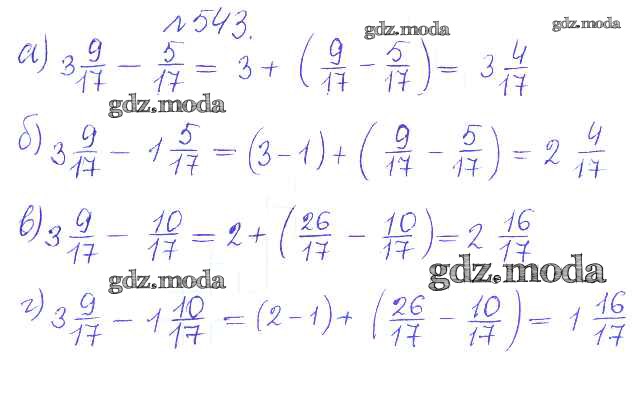 №543.
gdz.moda
gdz.moda
а) 3 9/17 − 5/17 = 3 + (9/17 − 5/17) = 3 4/17
gdz.moda
б) 3 9/17 − 1 5/17 = (3−1) + (9/17 − 5/17) = 2 4/17
в) 3 9/17 − 10/17 = 2 + (26/17 − 10/17) = 2 16/17
gdz.moda
gdz.moda
г) 3 9/17 − 1 10/17 = (2−1) + (26/17 − 10/17) = 1 16/17